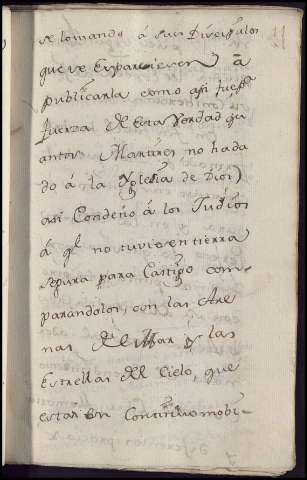 se lo mando á sus Discipulos
que se Esparciesen á
publicarla como asi fue pr
fuerza de Esta Verdad qu
antos Martires no hada
do á la Yglesia de Dios)
asi Condeno á los Judios
á q.l no tuvies en tierra
segura para Castigo com-
parandolos, con las Are
nas del Mar y las
Estrellas del Cielo, que
estan En Continuo mobi-